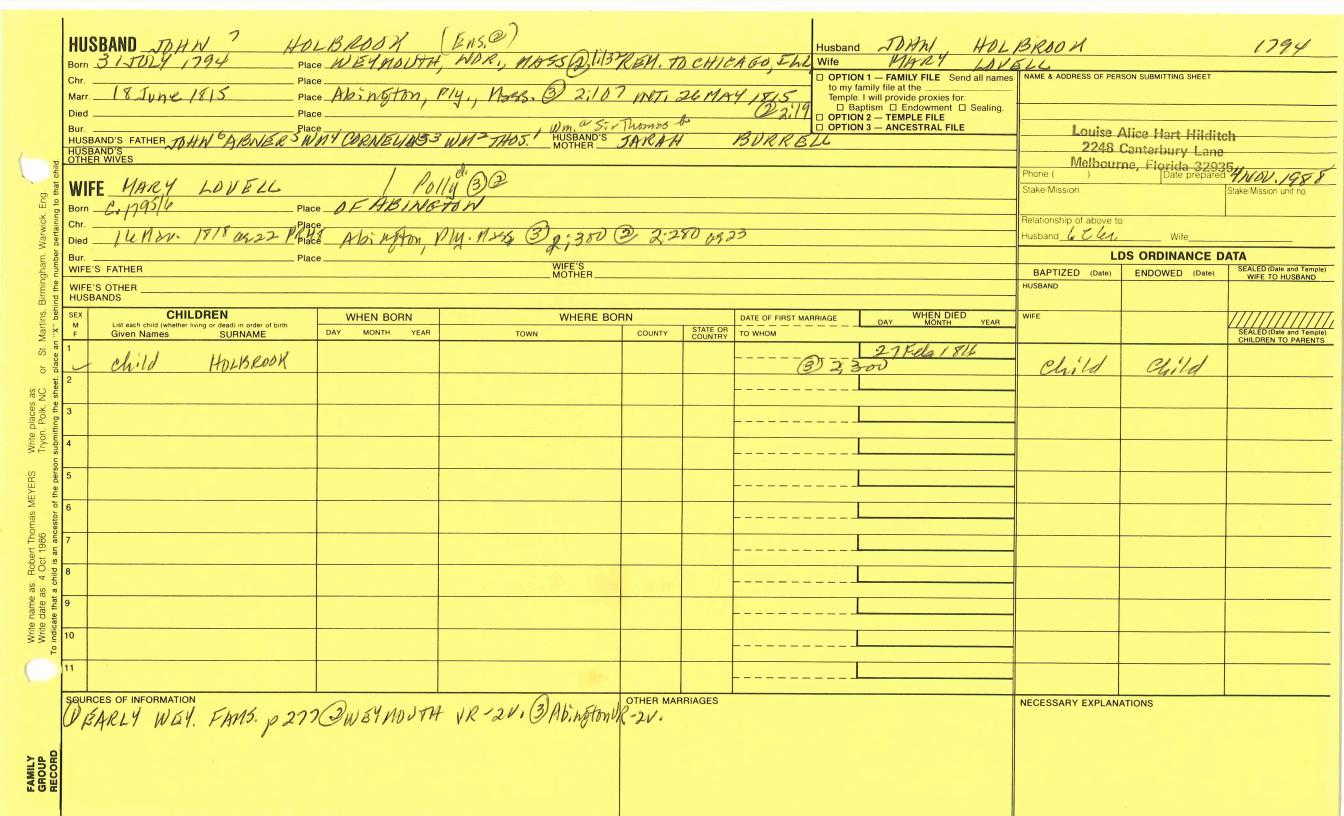 HUSBAND JOHN 7 HOLBROOK (Ens. ②)
Born 31 JULY 1794 Place WEYMOUTH, NOR., MASS ② REM. TO CHICAGO, ILL
Chr. Place
Marr 18 June 1815 Place Abington, Ply., Mass. ③ 2:107 INT. 26 MAY 1815
Died Place ② 2:19
Bur. Place Wm. Sir Thomas
HUSBAND'S FATHER JOHN 6 ABNER 5 WM 4 CORNELIUS 3 WM 2 THOS. 1 HUSBAND'S MOTHER SARAH BURRELL
HUSBAND'S OTHER WIVES
WIFE MARY LOVELL / Polly ③ ②
Born c. 1795/6 Place OF ABINGTON
Chr. Place
Died 16 Nov. 1818 ag 22 Place Abington, Ply. Mass ③ 2:300 ② 2:280 ag 23
Bur. Place
WIFE'S FATHER WIFE'S MOTHER
WIFE'S OTHER HUSBANDS
Husband JOHN, HOLBROOK 1794
Wife MARY LOVELL
☐ OPTION 1 — FAMILY FILE Send all names
to my family file at the
Temple. I will provide proxies for:
☐ Baptism ☐ Endowment ☐ Sealing.
☐ OPTION 2 — TEMPLE FILE
☐ OPTION 3 — ANCESTRAL FILE
NAME & ADDRESS OF PERSON SUBMITTING SHEET
Louise Alice Hart Hilditch
2248 Canterbury Lane
Melbourne, Florida 32935
Phone ( ) Date prepared 4 NOV. 1988
Stake-Mission Stake Mission unit no.
Relationship of above to
Husband Wife
LDS ORDINANCE DATA
BAPTIZED (Date) ENDOWED (Date) SEALED (Date and Temple) WIFE TO HUSBAND
HUSBAND
WIFE
SEALED (Date and Temple) CHILDREN TO PARENTS
SEX M F CHILDREN WHEN BORN WHERE BORN DATE OF FIRST MARRIAGE WHEN DIED
List each child (whether living or dead) in order of birth
Given Names SURNAME DAY MONTH YEAR TOWN COUNTY STATE OR COUNTRY TO WHOM DAY MONTH YEAR
1 child HOLBROOK 27 Feb 1816 Child Child
③ 2,300
2
3
4
5
6
7
8
9
10
11
SOURCES OF INFORMATION
① EARLY WEY. FAMS. p 277 ② WEYMOUTH VR-2V. ③ Abington VR-2V.
OTHER MARRIAGES
NECESSARY EXPLANATIONS
Write name as Robert Thomas MEYERS Write places as or St. Martins, Birmingham, Warwick, Eng
Write date as 4 Oct 1986 Tryon, Polk, NC
To indicate that a child is an ancestor of the person submitting the sheet, place an "X" behind the number pertaining to that child
FAMILY
GROUP
RECORD